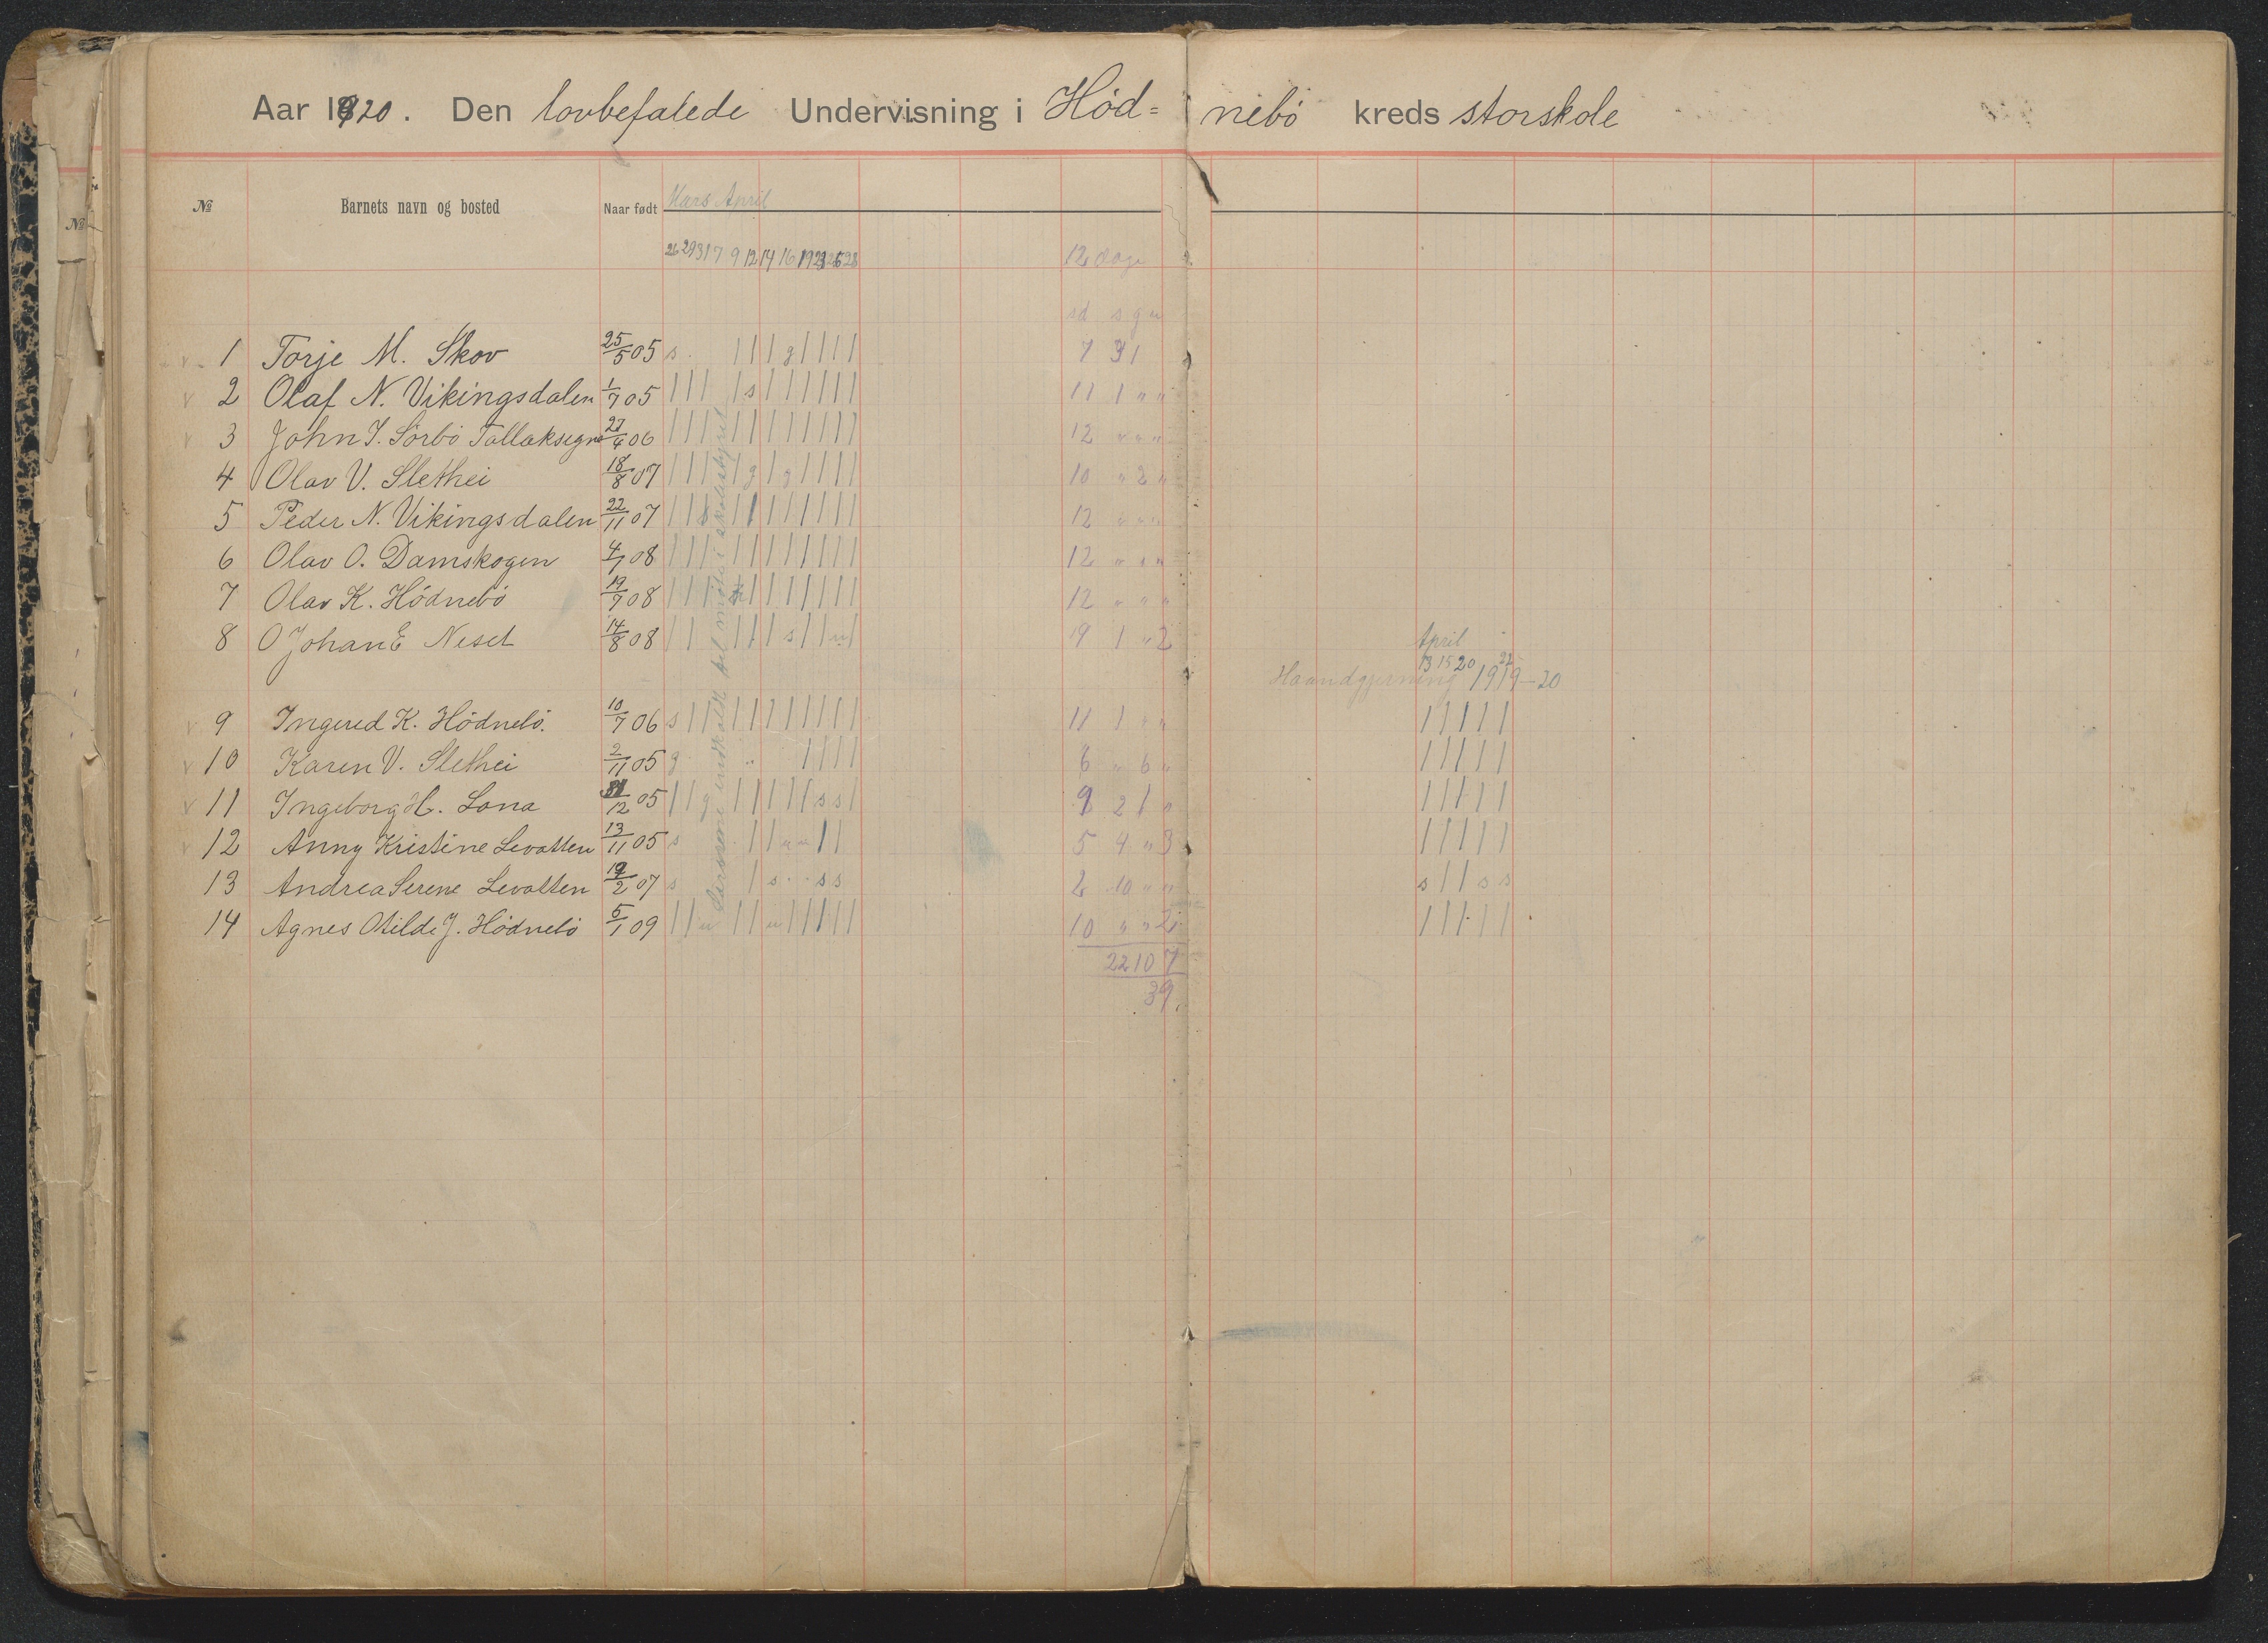 Aar 1920. Den lovbefalede Undervisning i Hød=nebø kreds storskole
№ Barnets navn og bosted Naar født Mars April
26 29 31 7 9 12 14 16 19 23 26 28 12 dage
sd s g u
1 Torje M. Skov 25/5 05 s | | | g | | | | 7 3 1
2 Olaf N. Vikingsdalen 1/7 05 | | | | s | | | | | | 11 1 " "
3 John T. Sörbö Tallaksegra 27/4 06 | | | | | | | | | | | | 12 " " "
4 Olav V. Slethei 18/8 07 | | | | g | g | | | | 10 " 2 "
5 Peder N. Vikingsdalen 22/11 07 | | | | | | | | | | | 12 " " "
6 Olav O. Damskogen 4/7 08 | | | | | | | | | | | | 12 " " "
7 Olav K. Hödnebö 19/7 08 | | | | | | | | | | | 12 " " "
8 O Johan E Neset 14/8 08 | | | | | s | | u | 19 1 " 2
April
13 15 20 22
Haandgjerning 1919-20
9 Ingered K. Hödnebö. 10/7 06 s | | | | | | | | | | | 11 1 " " | | | | |
10 Karen V. Slethei 2/11 05 g " | | | | 6 " 6 " | | | | |
11 Ingeborg H. Lona 31/12 05 | | g | | | | | | s s | 9 2 1 " | | | | |
12 Anny Kristine Levatten 13/11 05 s | | u u | | 5 4 " 3 | | | | |
13 Andrea Serene Levatten 19/2 07 s | s " " s s 2 10 " " s | | s s
14 Agnes Otilde J. Hödnebö 5/1 09 | | u | | u | | | | | | 10 " " 2 | | | | |
22 10 7
39.
møte i skolestyret